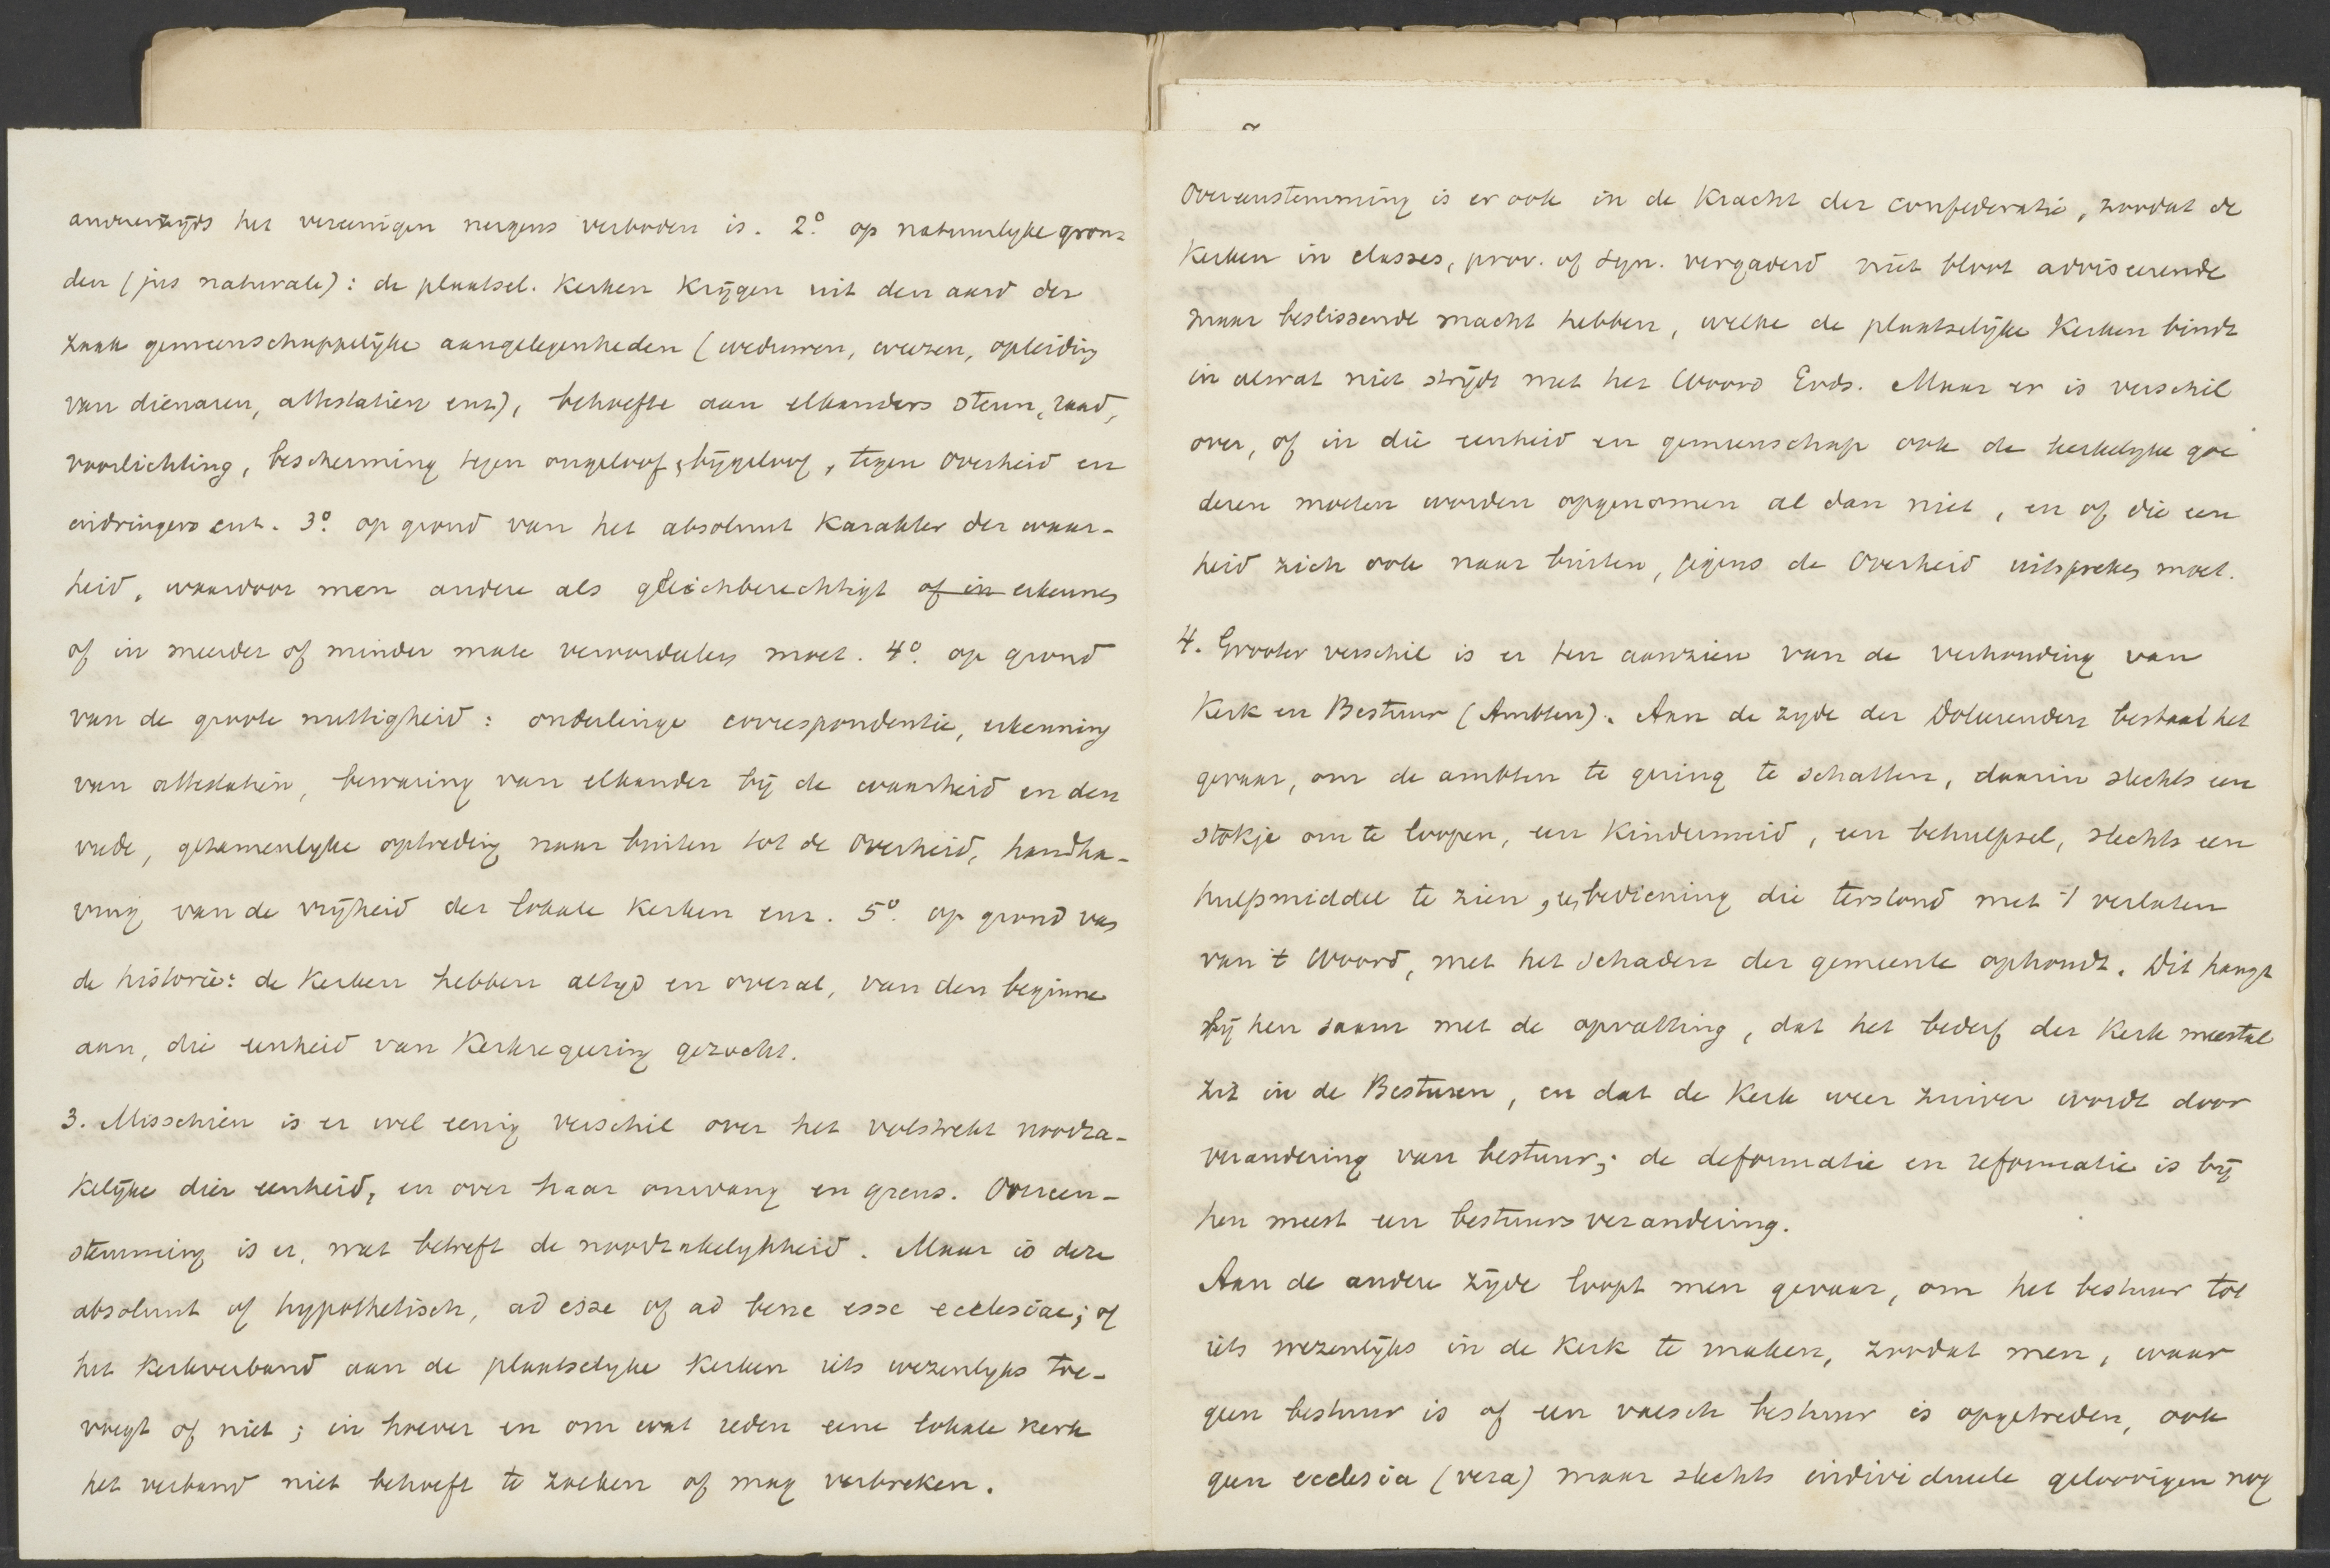 anderenzijds het vereenigen nergens verboden is. 2o. op natuurlijke gron-
den (jus naturale): de plaatsel. Kerken krijgen uit den aard der
zaak gemeenschappelijke aangelegenheden (weduwen, weezen, opleiding
van dienaren, attestatiën enz), behoefte aan elkanders steun, raad,
voorlichting, bescherming tegen ongeloof, bijgeloof, tegen Overheid en
indringers enz. 3o. op grond van het absoluut karakter der waar-
heid, waardoor men andere als gleichberechtigt of in erkennen
of in meerder of minder mate veroordeelen moet. 4o. op grond
van de groote nuttigheid: onderlinge correspondentie, erkenning
van attestatiën, bewaring van elkander bij de waarheid en den
vrede, gezamenlijke optreding naar buiten tot de Overheid, handha-
ving van de vrijheid der lokale Kerken enz. 5o. op grond van
de historie: de Kerken hebben altijd en overal, van den beginne
aan, die eenheid van Kerkregeering gezocht.
3. Misschien is er wel eenig verschil over het volstrekt noodza-
kelijke dier eenheid, en over haar omvang en grens. Overeen-
stemming is er, wat betreft de noodzakelijkheid. Maar is deze
absoluut of hypothetisch, ad esse of ad bene esse ecclesiae; of
het Kerkverband aan de plaatselijke Kerken iets wezenlijks toe-
voegt of niet; in hoever en om wat reden eene lokale Kerk
het verband niet behoeft te zoeken of mag verbreken.
Overeenstemming is er ook in de Kracht der confederatie, zoodat de
Kerken in classes, prov. of syn. vergaderd niet bloot adviseerende
maar beslissende macht hebben, welke de plaatselijke Kerken bindt
in alwat niet strijdt met het Woord Gods. Maar er is verschil
over, of in die eenheid en gemeenschap ook de kerkelijke goe
deren moeten worden opgenomen al dan niet, en of die een
heid zich ook naar buiten, jegens de Overheid uitspreken moet.
4. Grooter verschil is er ten aanzien van de verhouding van
Kerk en Bestuur (Ambten). Aan de zijde der Doleerenden bestaat het
gevaar, om de ambten te gering te schatten, daarin slechts een
stokje om te loopen, een Kindermeid, een behulpsel, slechts een
hulpmiddel te zien, bediening die terstond met 't verlaten
van 't Woord, met het schaden der gemeente ophoudt. Dit hangt
bij hen saam met de opvatting, dat het bederf der Kerk meestal
zit in de Besturen, en dat de Kerk weer zuiver wordt door
verandering van bestuur; de deformatie en reformatie is bij
hen meest een bestuursverandering.
Aan de andere zijde loopt men gevaar, om het bestuur tot
iets wezenlijks in de Kerk te maken, zoodat men, waar
geen bestuur is of een valsch bestuur is opgetreden, ook
geen ecclesia (vera) maar slechts individueele geloovigen nog